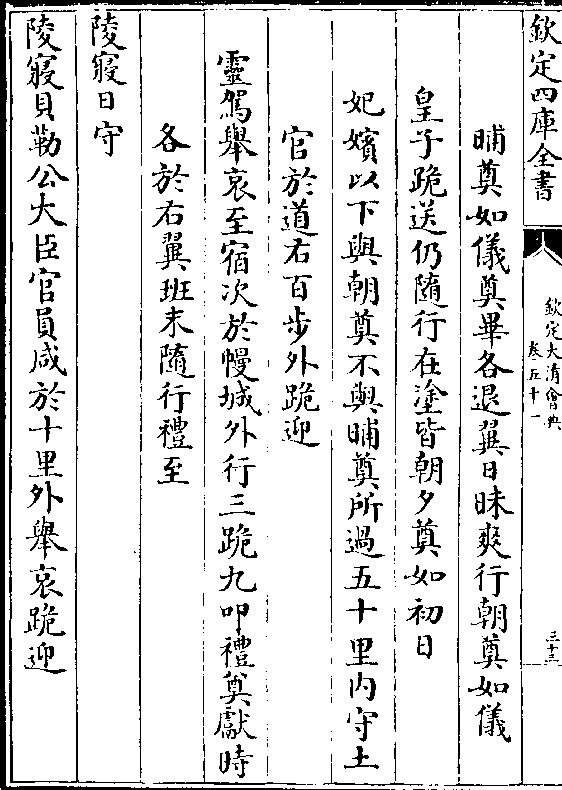 欽定四庫全書
欽定大清會典
卷五十一
三十三
晡奠如儀奠畢各退翼日昧爽行朝奠如儀
皇子跪送仍隨行在塗皆朝夕奠如初日
妃嬪以下與朝奠不與晡奠所過五十里内守土
官於道右百步外跪迎
靈駕舉哀至宿次於幔城外行三跪九叩禮奠獻時
各於右翼班末隨行禮至
陵寢日守
陵寢貝勒公大臣官員咸於十里外舉哀跪迎